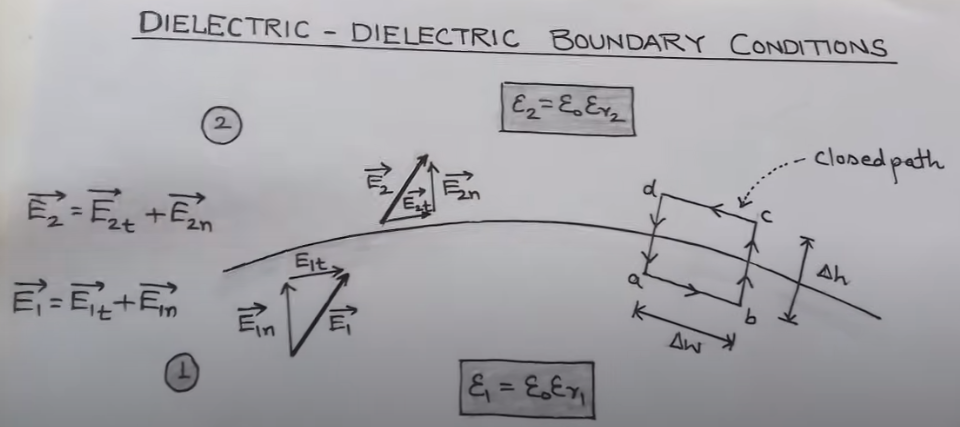 DIELECTRIC - DIELECTRIC BOUNDARY CONDITIONS
2
ε₂ = ε₀εr₂
closed path
E⃗₂ = E⃗₂t + E⃗₂n
E⃗₂
E⃗₂t
E⃗₂n
d
c
a
b
Δh
Δw
E⃗₁ = E⃗₁t + E⃗₁n
E₁t
E⃗₁n
E⃗₁
1
ε₁ = ε₀εr₁